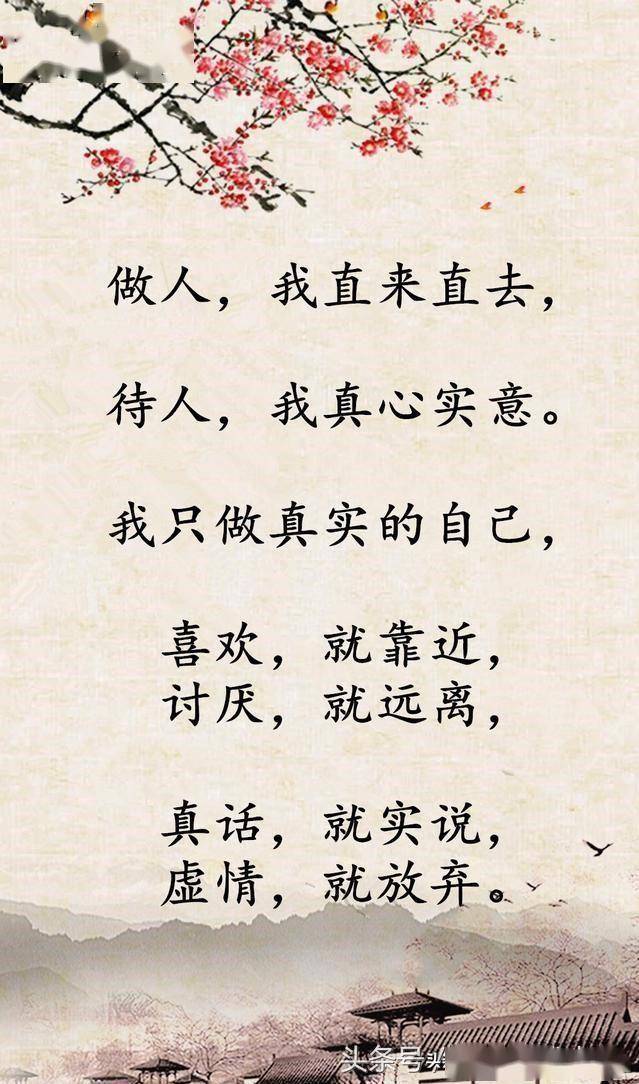 做人，我直来直去，
待人，我真心实意。
我只做真实的自己，
喜欢，就靠近，
讨厌，就远离，
真话，就实说，
虚情，就放弃。
头条号